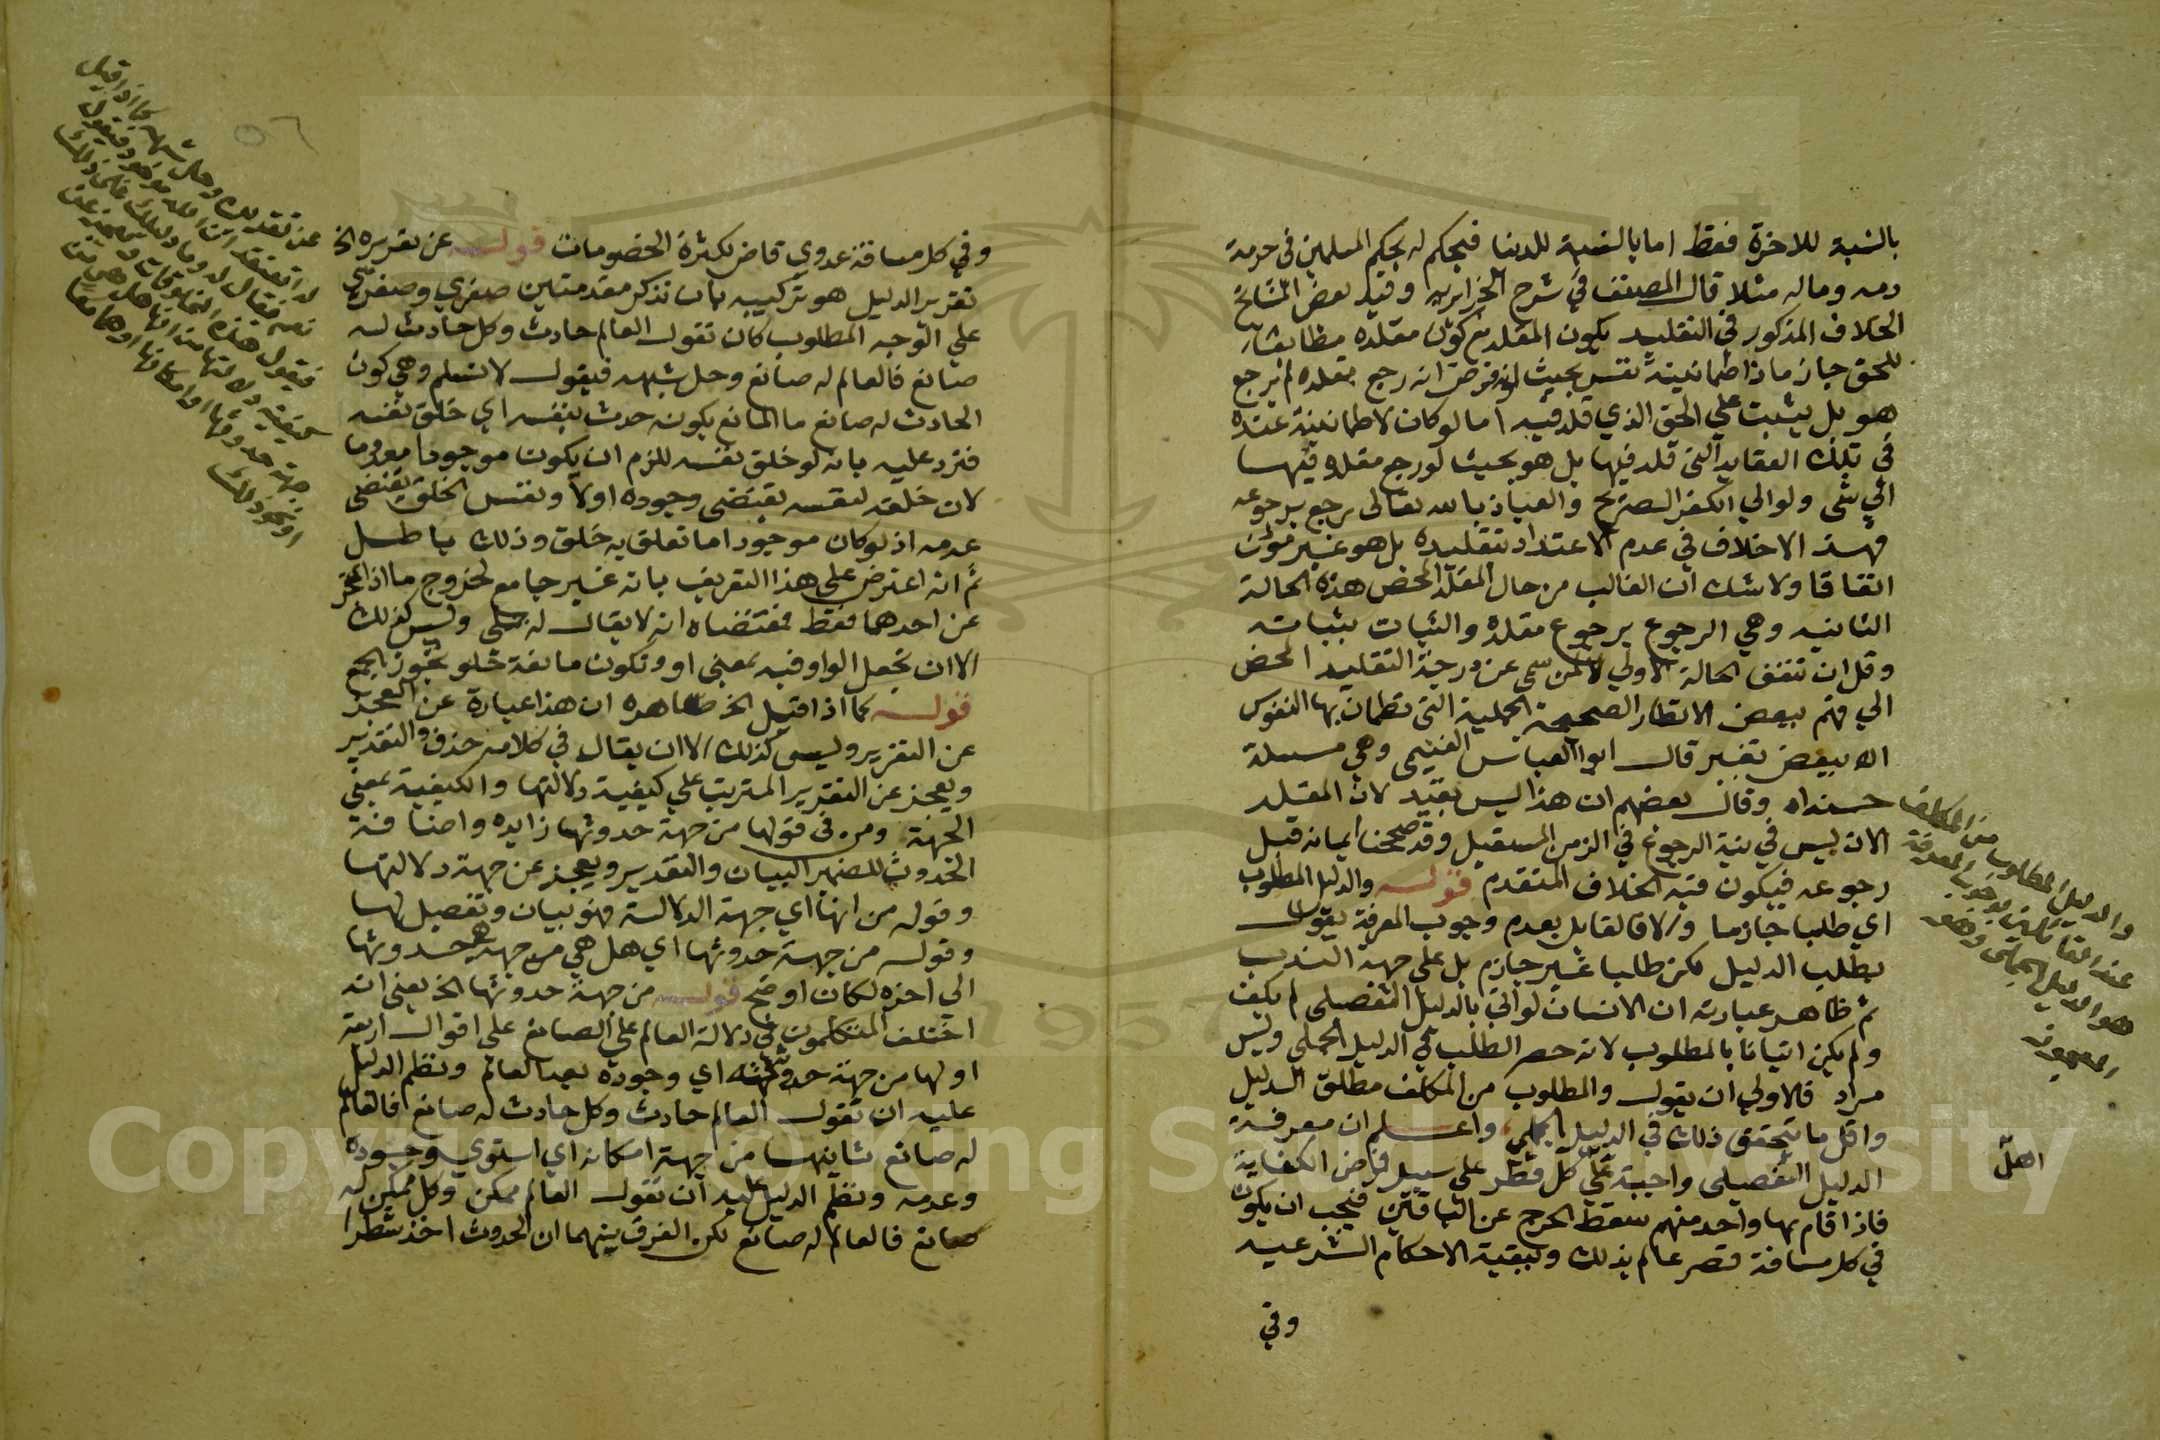 بالنسبة للاخرة فقط اما بالنسبة للدنيا فيحكم له بحكم المسلمين في حرمة
دمه وماله مثلا قال المصنف في شرح الجزايريه وقيد بعض المشايخ
الخلاف المذكور في التقليد بكون المقلد مع كون مقلده مطابقا
للحق جازما ذا طمانينة نفس بحيث لو فرض انه رجع مقلده لم يرجع
هو بل يثبت علي الحق الذي قلد فيه اما لو كان لا طمانينة عنده
في تلك العقايد التي قلد فيها بل هو بحيث لو رجع مقلده فيها
الي شي ولو الي الكفر الصريح والعياذ بالله تعالى يرجع برجوعه
فهذا لا خلاف في عدم الاعتداد بتقليده بل هو غير مؤمن
اتفاقا ولا شك ان الغالب من حال المقلد المحض هذه الحالة
الثانيه وهي الرجوع برجوع مقلده والثبات بثباته
وقل ان تتفق الحالة الاولي الا لمن سمي عن درجة التقليد المحض
الي فهم ببعض الانظار الصحيحة الجملية التي تطمان بها النفوس
الا ببعض تغير قال ابو العباس الغنيمي وهي مسيلة
حسنه اه وقال بعضهم ان هذا ليس بقيد لان المقلد
الان ليس في نية الرجوع في الزمن المستقبل وقد صححنا ايمانه قبل
رجوعه فيكون فيه الخلاف المتقدم قوله والدليل المطلوب
اي طلبا جازما والا فالقايل بعدم وجوب المعرفة يقول
بطلب الدليل لكن طلبا غير جازم بل علي جهة الندب
ثم ظاهر عبارته ان الانسان لو اتي بالدليل التفصيلي لم يكف
ولم يكن اتيانا بالمطلوب لانه حصر الطلب في الدليل الجملي وليس
مراد فالاولي ان يقول والمطلوب من المكلف مطلق الدليل
واقل ما يتحقق ذلك في الدليل الجملي واعلم ان معرفة
الدليل التفصيلي واجبة علي كل قطر علي سبيل فرض الكفاية
فاذا قام بها واحد منهم سقط الحرج عن الباقين فيجب ان يكون
في كل مسافة قصر عالم بذلك ولبقية الاحكام الشرعيه
وفي
والدليل المطلوب من المكلف
عند القائلين بوجوب المعرفة
هو الدليل الجملي وهو
المعجوز
اهل
وفي كل مسافة عدوي قاض لكثرة الخصومات قوله عن تقريره الخ
تقرير الدليل هو تركيبه بان تذكر مقدمتين صغري وكبري
علي الوجه المطلوب كان تقول العالم حادث وكل حادث له
صانع فالعالم له صانع وحل شبهه فيقول لا نسلم وهي كون
الحادث له صانع ما المانع يكون حدث بنفسه اي خلق نفسه
فترد عليه بانه لو خلق نفسه للزم ان يكون موجودا معدوما
لان خلقه لنفسه يقتضي وجوده اولا ونفس الخلق يقتضي
عدمه اذ لو كان موجودا ما تعلق به خلق وذلك باطل
ثم انه اعترض علي هذا التعريف بانه غير جامع لخروج ما اذا عجز
عن احدهما فقط فمقتضاه انه لا يقال له جملي وليس كذلك
الا ان تجعل الواو فيه بمعني او وتكون مانعة خلو تجوز الجمع
قوله كما اذا قيل الخ ظاهره ان هذا عبارة عن العجز
عن التقرير وليس كذلك الا ان يقال في كلامه حذف والتقدير
ويعجز عن التقرير المترتب علي كيفية دلالتها والكيفية بمعني
الجهة ومن في قولها من جهة حدوثها زايده واضافة
الحدوث للضمير البيان والتقدير ويعجز عن جهة دلالتها
وقوله من انها اي جهة الدلالة فهو بيان وتفصيل لها
وقوله من جهة حدوثها اي هل هي من جهة حدوثها
الي اخره لكان اوضح قوله من جهة حدوثها الخ يعني انه
اختلف المتكلمون في دلالة العالم علي الصانع علي اقوال اربعة
اولها من جهة حدوثه اي وجوده بعد العالم ونظم الدليل
عليه ان تقول العالم حادث وكل حادث له صانع فالعالم
له صانع ثانيها من جهة امكانه اي استوي وجوده
وعدمه ونظم الدليل عليه ان تقول العالم ممكن وكل ممكن له
صانع فالعالم له صانع لكن الفرق بينهما ان الحدوث اخذ شطرا
Copyright © King Saud University
1957